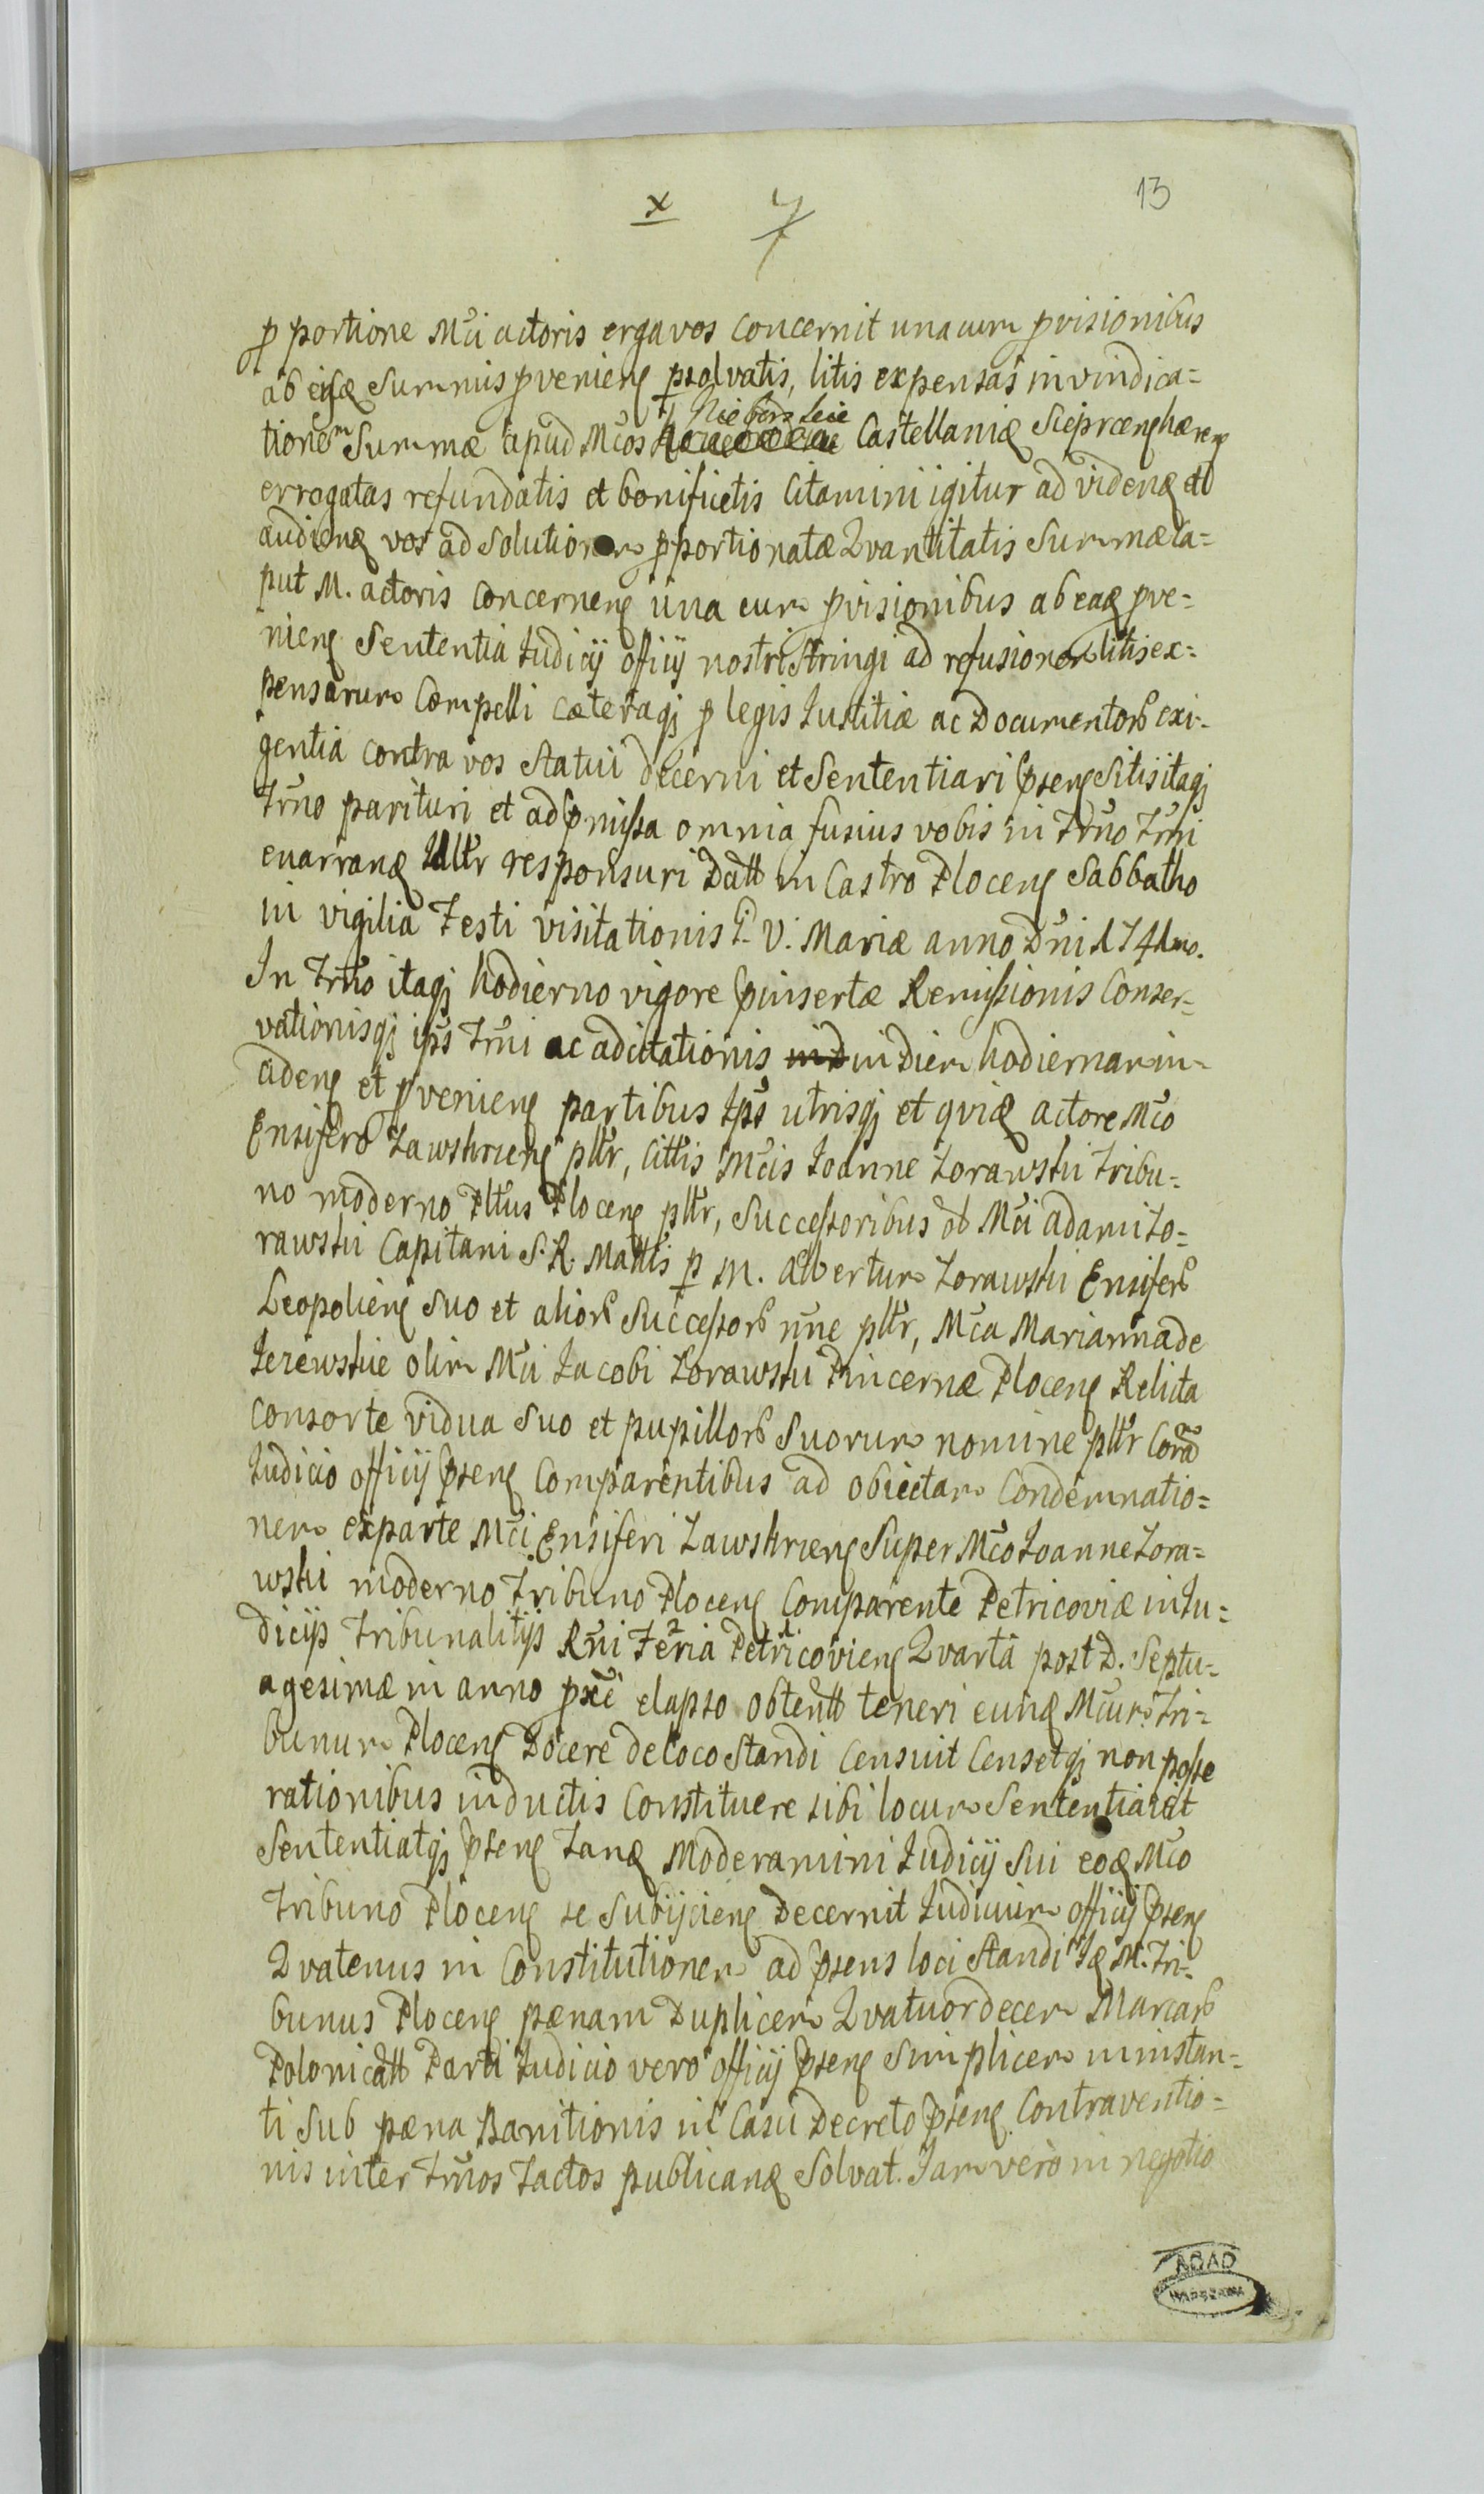 x 7 13
p portione Mci actoris erga vos concernit una cum pvisionibus
ab eisd summis pvenien psolvatis, litis expensas in vindica=
tionem Summæ apud Mcos Castellaniæ Sieprcen hæren
errogatas refundatis et bonificetis Citamini igitur ad viden et
audien vos ad solutionem pportionatæ Qvantitatis Summæ ca=
put M. actoris concernen una cum pvisionibus ab ead pve=
nien Sententia Iudicij officij nostri stringi ad refusionem litis ex=
pensarum Compelli cæteraqj p legis Iustitiæ ac Documentor exi=
gentia contra vos statui decerni et Sententiari psen sitis itaqj
Trno parituri et ad pmissa omnia fusius vobis in Trno Trni
enarran lltr responsuri Datt in Castro Plocen Sabbatho
in vigilia Festi visitationis B. V. Mariæ anno Dni 1741mo.
In Trno itaqj hodierno vigore pinsertæ Remissionis Conser=
vationisqj ips Trni ac adcitationis in Diem hodiernam in=
ciden et pvenien partibus Ips utrisqj et qvid actore Mco
Ensifero Zawskrzen pltr, Cittis Mcis Ioanne Zorawski Tribu=
no moderno Pltus Plocen pltr, Successoribus ol Mci Adami Zo=
rawski Capitani S. R. Mattis p M. Albertum Zorawski Ensifer
Leopolien Suo et alior Successor nne pltr, Mca Marianna de
Jerewskie olim Mci Jacobi Zorawski Pincernæ Plocen Relicta
consorte vidua Suo et pupillor Suorum nomine pltr Cora
Iudicio officij psen Comparentibus ad obiectam Condemnatio=
nem ex parte Mci Ensiferi Zawskrzen Super Mco Ioanne Zora=
wski moderno Tribuno Plocen Comparente Petricoviæ in Iu=
dicijs Tribunalitijs Rni Feria Petricovien Qvarta post D. Septu=
agesimæ in anno pxe elapso obtentt teneri eund Mcum Tri=
bunum Plocen Docere de loco standi Censuit Censetqj non posse
rationibus inductis Constituere sibi locum Sententiavit
Sententiatqj psen Tand Moderamini Iudicij Sui eod Mco
Tribuno Plocen se Subijcien Decernit Iudicium officij psen
Qvatenus in Constitutionem ad psens loci standi Id M. Tri=
bunus Plocen pænam Duplicem Qvatuordecem Marcar
Polonicatt Parti Iudicio vero officij psen Simplicem in instan=
ti Sub pæna Banitionis in Casu Decreto psen Contraventio=
nis inter Trnos Tactos publicand Solvat. Iam vero in negotio
AGAD
WARSZAWA